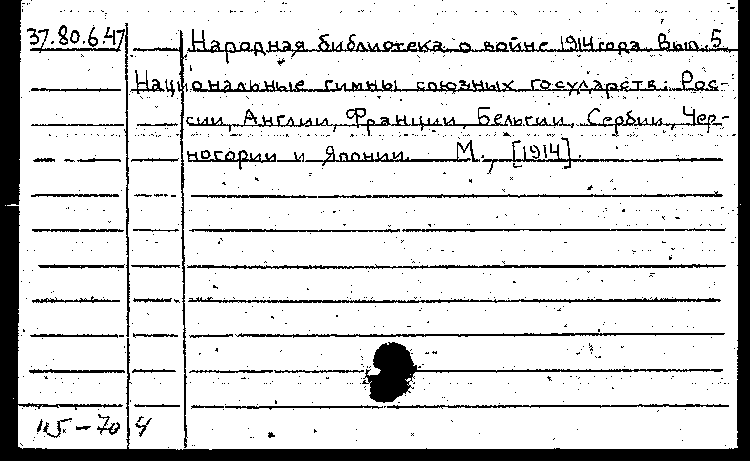 37.80.6.47 Народная библиотека о войне 1914 года. Вып. 5
Национальные гимны союзных государств: Рос-
сии, Англии, Франции, Бельгии, Сербии, Чер-
ногории и Японии. М., [1914].
115-70 4